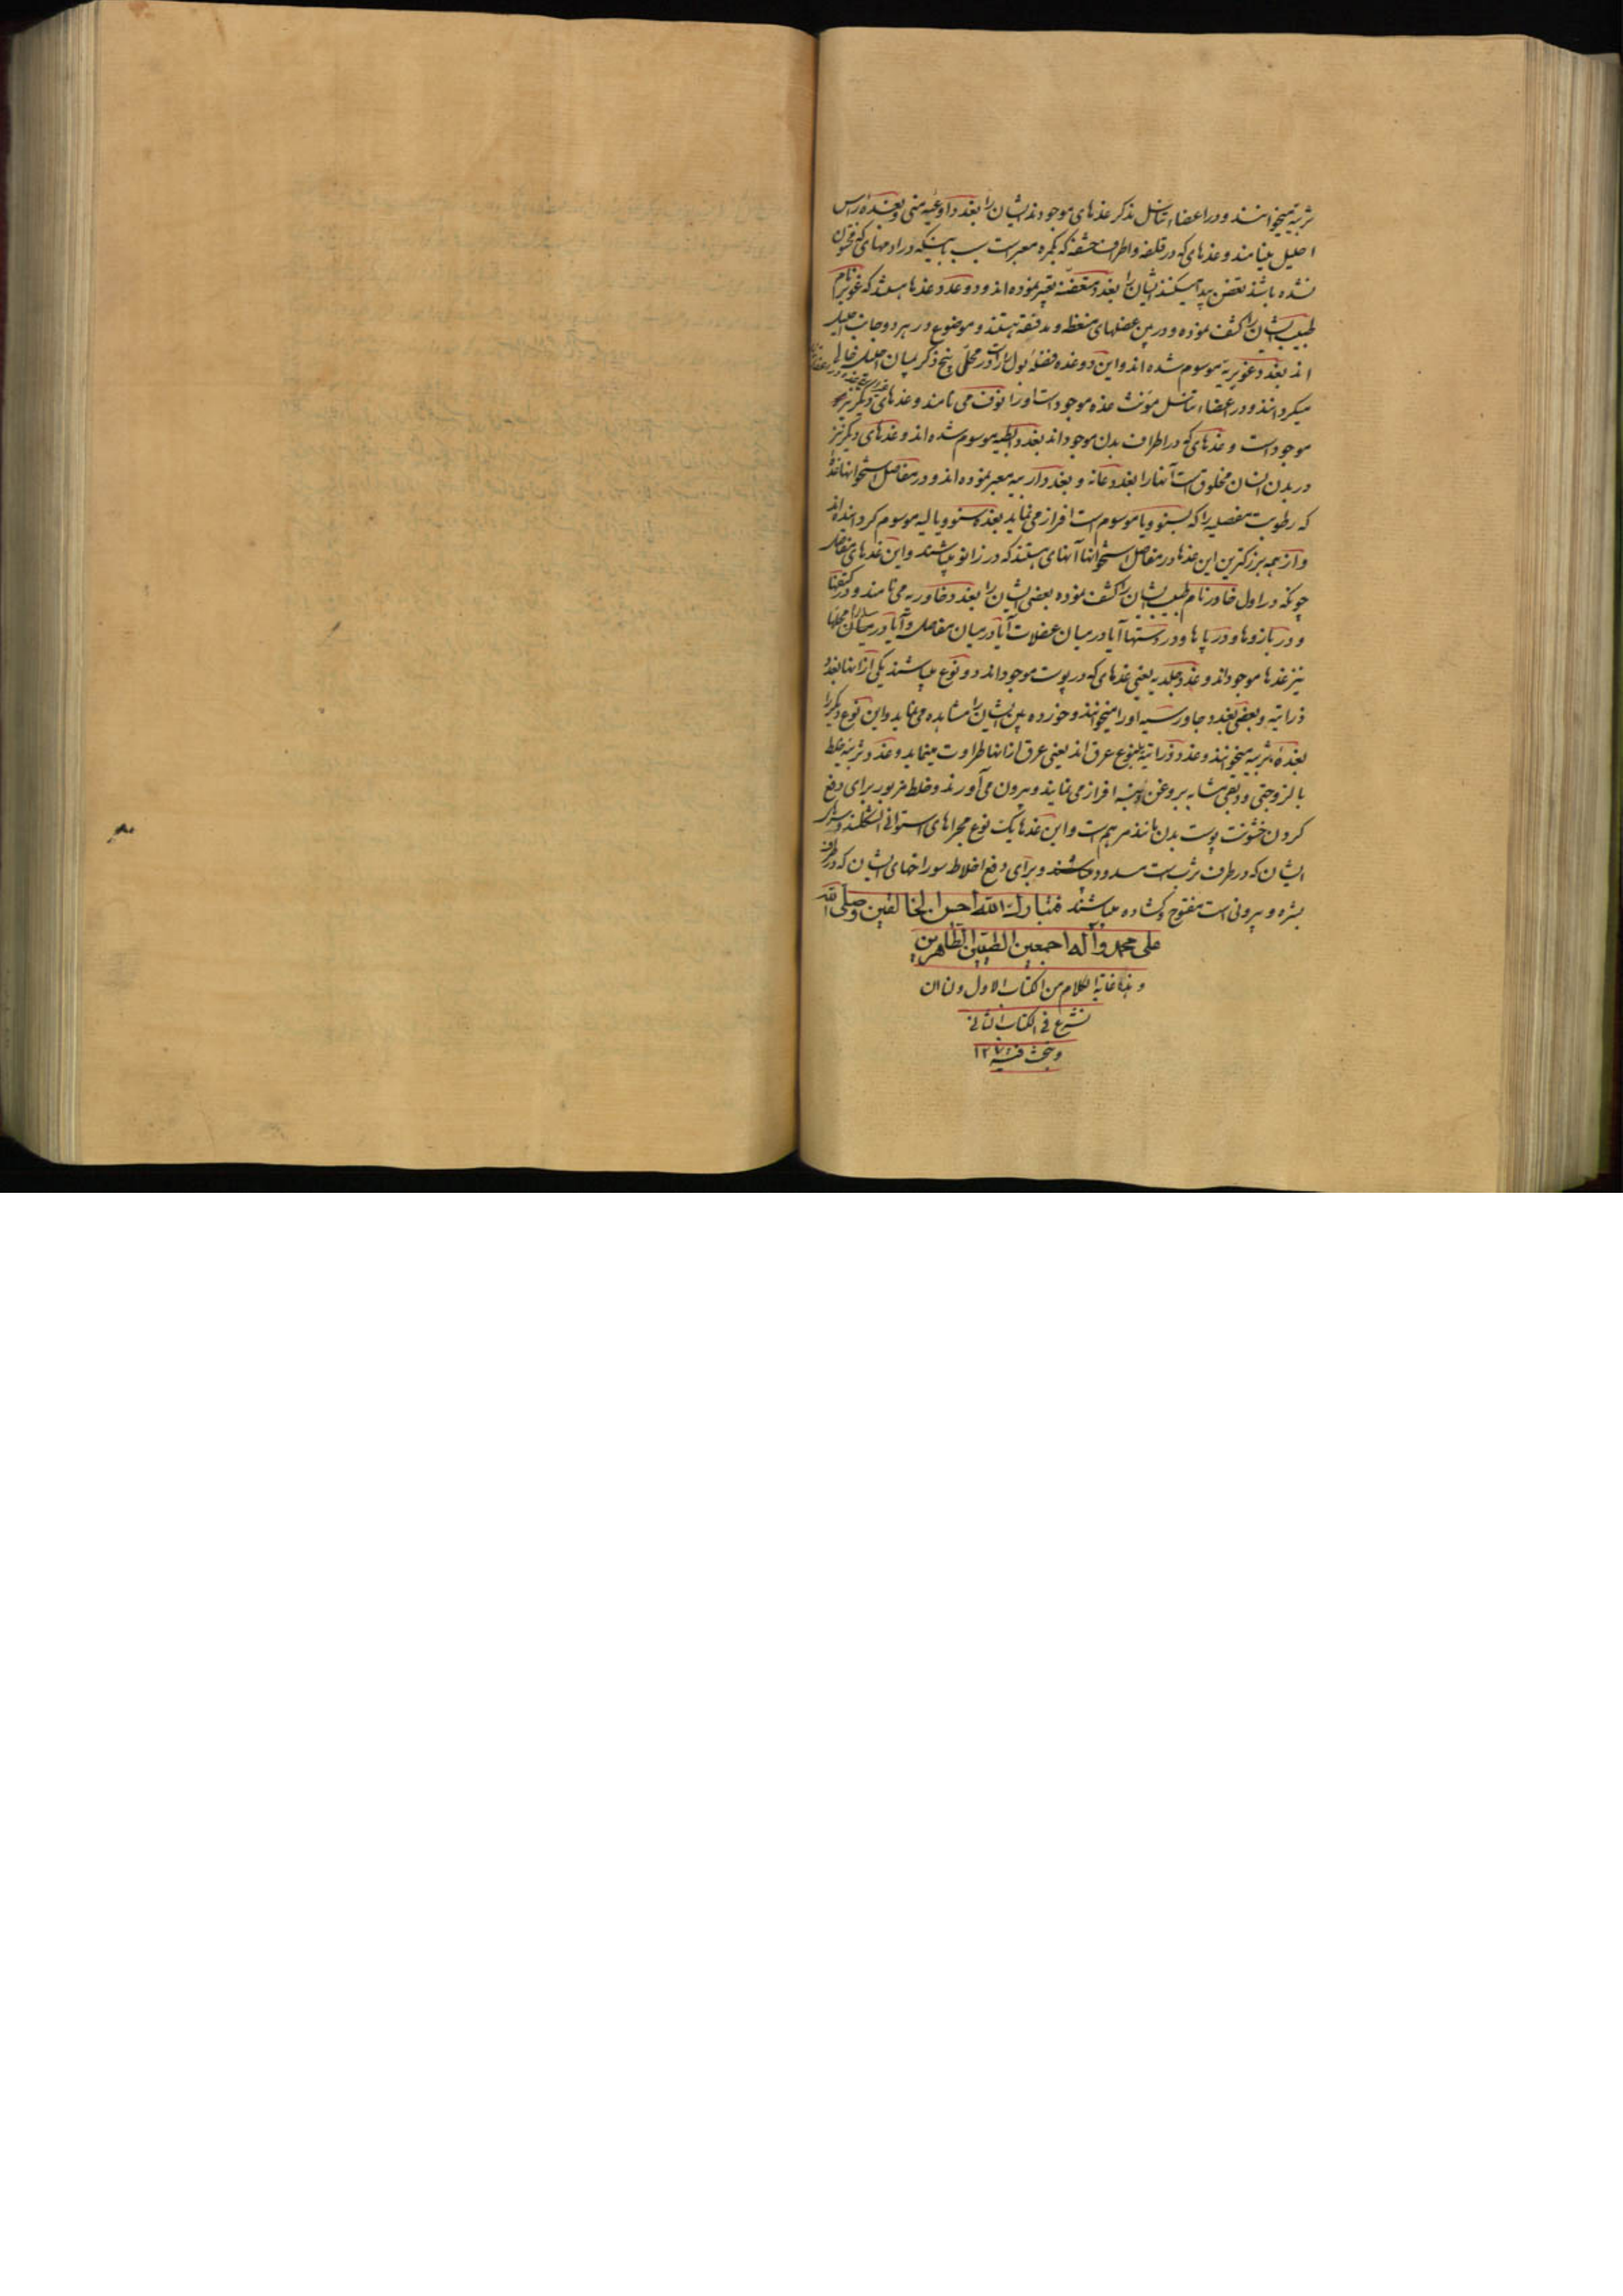 ثربیه میخوانند و در اعضاء تناسل مذکر غذهای موجودند ایشان را بغدد اوعیه منی و بغدهٔ راس
احلیل مینامند و غذهای که در قلفه و اطراف حشفه که بکمره معبر است بسبب اینکه در ادمهای که مختون
نشده باشند تعفن پیدا میکنند ایشان را بغدد متعفنه تعبیر نموده اند و دو عدد غذها هستند که غوپر نام
طبیب ایشان را کشف نموده و در بین عضلهای منعظه و مدفقه هستند و موضوع در هر دو جانب احلیل
اند بغدد غوپریه موسوم شده اند و این دو غده فضلهٔ بول را در محلی بیخ ذکر بمیان احلیل خالی
میگردانند و در اعضاء تناسل مؤنث غذه موجود است او را نوف می نامند و غذهای دیگر نیز
موجود است و غذهای که در اطراف بدن موجود اند بغدد ابطیه موسوم شده اند و غذهای دیگر نیز
در بدن انسان مخلوق است آنها را بغدد عانه و بغدد اربیه معبر نموده اند و در مفاصل استخوانها غذها
که رطوبت مفصلیه را که بسنوویا موسوم است افراز می نماید بغدد سنوویالیه موسوم گردانیده اند
و از همه بزرگترین این غذها در مفاصل استخوانها آنهای هستند که در زانو میباشند و این غذهای مفاصل
چونکه در اول خاور نام طبیب ایشان را کشف نموده بعضی ایشان را بغدد خاوریه می نامند و در کتفها
و در بازوها و در پاها و در دستها آیا در میان عضلات آیا در میان مفاصل و آیا در میان سائر محلها
نیز غذها موجود اند و غدد جلدیه یعنی غذهای که در پوست موجود اند دو نوع میباشند یکی از انها بغدد
ذراتیه و بعضی بغدد جاورسیه او را میخوانند و خورده بین ایشان را مشاهده می نماید و این نوع دیگر را
بغدهٔ ثربیه میخوانند و غدد ذراتیه ینبوع عرق اند یعنی عرق از انها طراوت مینماید و غدد ثربیه خلط
با لزوجتی و دبقی مشابه بروغن و پنبه افراز می نمایند و بیرون می آورند و خلط مزبور برای دفع
کردن خشونت پوست بدن مانند مرهم است و این غذها یک نوع مجراهای استوانی الشکلند و سوراخ
ایشان که در طرف ثرب است مسدود میباشند و برای دفع اخلاط سوراخهای ایشان که در طرف
بشره و بیرونی است مفتوح و گشاده میباشند فتبارک الله احسن الخالقین و صلی الله
علی محمد و آله اجمعین الطیبین الطاهرین
و هذا غایة الکلام من الکتاب الاول و لنا ان
نشرع فی الکتاب الثانی
و نبحث فیه ۱۲۷۱